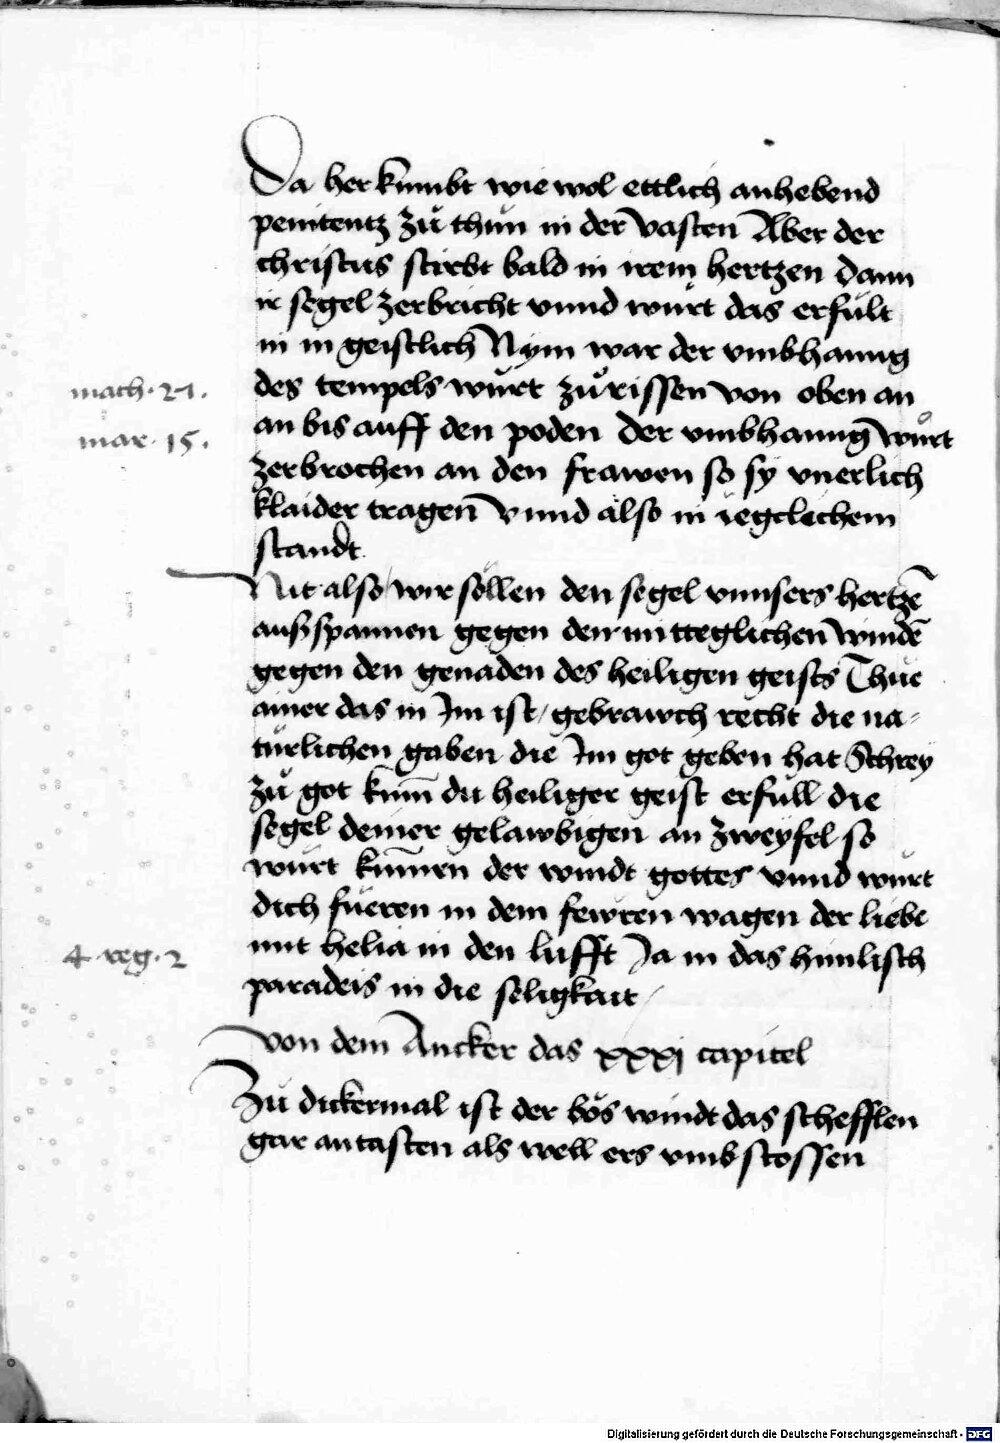 Da her kumbt wie wol ettlich anhebend
penitentz zů thůn in der vasten Aber der
christus stirbt bald in irem hertzen dann
ir segel zerbricht vnnd wůrt das erfült
in in geistlich Nym war der vmbhanng
des tempels wůrt zůrissen von oben an
math. 27.
an bis auff den poden Der vmbhanng wůrt
mar. 15.
zerbrochen an den frawen so sy vnerlich
klaider tragen Vnnd also in iegclichem
standt
Nit also wir söllen den segel vnnsers hertzē
ausspannen gegen dem mitteglichen windē
gegen den genaden des heiligen geists Thue
ainer das in Im ist / gebrawch recht die na-
türlichen gaben die Im got geben hat Schrey
zů got kum̄ du heiliger geist erfüll die
segel deiner gelawbigen an zweyfel so
wůrt kum̄en der windt gottes vnnd wůrt
dich fueren in dem fewren wagen der liebe
mit helia in den lufft Ja in das himlisch
4 reg. 2
paradeis in die seligkait /
Von dem Ancker das xxxj capitel
Zů dickermal ist der bös windt das schefflen
gar antasten als well ers vmbstossen
Digitalisierung gefördert durch die Deutsche Forschungsgemeinschaft - DFG